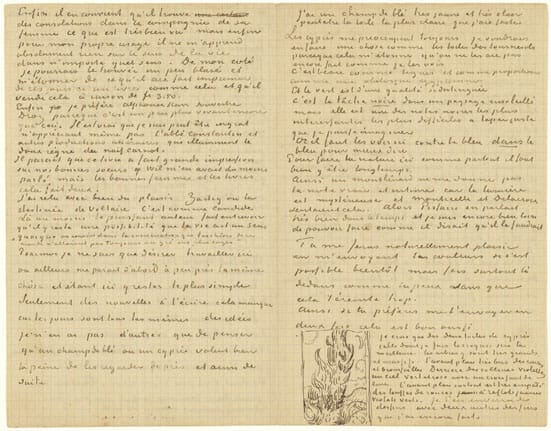 Enfin il en convient qu'il trouve
des consolations dans la compagnie de sa
femme ce que est très bien vu mais enfin
pour mon propre usage il ne m'apprend
absolument rien sur le sens de la vie
dans n'importe quel sens. De mon côté
je pourrais le trouver un peu blasé et
m'étonner de ce qu'il ait fait imprimer
de ces jours ci un livre comme cela et qu'il
vende cela à raison de fr 3.50.
Enfin je préfère Alphonse Karr Souvestre
Droz parceque c'est un peu plus vivant encore
que ceci. Il est vrai que je suis peut être ingrat
n'appréciant même pas l'abbé Constantin et
autres productions littéraires qui illuminent le
doux règne du naïf Carnot.
Il paraît que ce livre a fait grande impression
sur nos bonnes soeurs Wil m'en avait du moins
parlé, mais les bonnes femmes et les livres
cela fait deux.
J'ai relu avec bien du plaisir Zadig ou la
destinée de Voltaire. C'est comme Candide
Là au moins le puissant auteur fait entrevoir
qu'il y reste une possibilité que la vie ait un sens
ne sais que désirer travailler ici
ou ailleurs me paraît d'abord à peu près la même
chose et étant ici y rester le plus simple
Seulement des nouvelles à t'écrire cela manque
car les jours sont tous les mêmes des idées
je n'en ai pas d'autres que de penser
qu'un champ de blé ou un cyprès valent bien
la peine de les regarder de près et ainsi de
suite
J'ai un champ de blé très jaune et très clair
peutêtre la toile la plus claire que j'ai faite
Les cyprès me préoccupent toujours je voudrais
en faire une chose comme les toiles des tournesols
parceque cela m'étonne qu'on ne les ait pas
encore fait comme je les vois.
C'est beau comme lignes et comme proportions
comme une obélisque égyptienne.
Et le vert est d'une qualité si distinguée
C'est la tache noire dans un paysage ensoleillé
mais elle est une des notes noires les plus
intéressantes les plus difficiles à taper juste
que je puisse imaginer
Or il faut les voir ici contre le bleu dans le
bleu pour mieux dire
Pour faire la nature ici comme partout il faut
bien y être longtemps.
Ainsi un Monthénard ne me donne pas
la note vraie et intime car la lumière
est mystérieuse et Monticelli et Delacroix
sentaient cela. Alors Pissarro en parlait
très bien dans le temps et je suis encore bien loin
de pouvoir faire comme il disait qu'il le faudrait
Tu me feras naturellement plaisir
en m'envoyant les couleurs si c'est
possible bientôt mais fais surtout là
dedans comme tu peux sans que
cela t'éreinte trop.
Ainsi si tu préfères me l'envoyer en
deux fois cela est bon aussi
Je crois que des deux toiles de cyprès
celle dont je fais le croquis sera la
meilleure. Les arbres y sont très grands
et massifs. L'avant plan très bas des ronces
et broussailles. Derrière des collines violettes
un ciel vert et rose avec un croissant de
lune. L'avant plan surtout est très empâté
des touffes de ronces à reflets jaunes
violets verts. Je t'en enverrai des
dessins avec deux autres dessins
que j'ai encore faits.